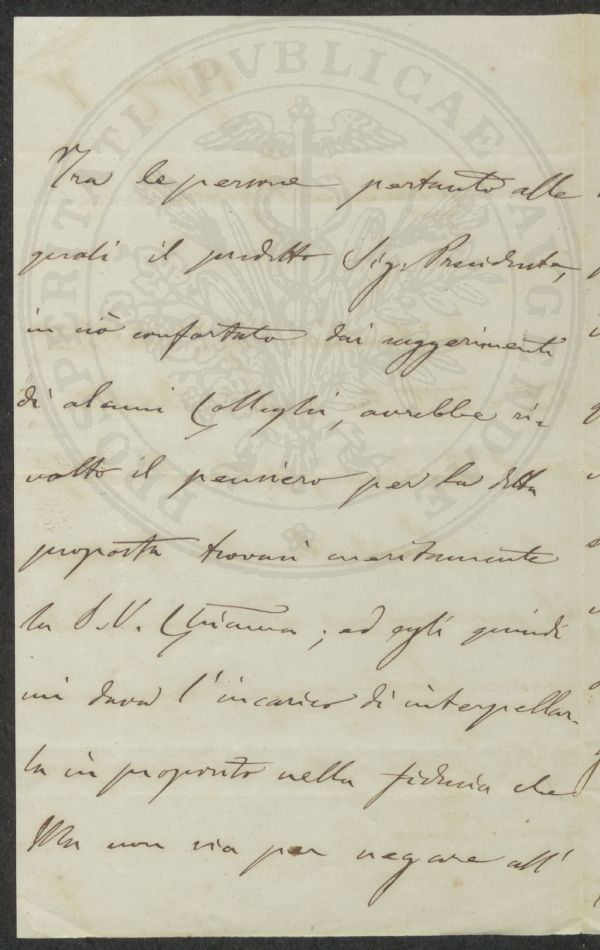 PROSPERITATI PVBLICAE AVGENDAE
Tra le persone pertanto alle
quali il predetto Sig. Presidente,
in ciò confortato dai suggerimenti
di alcuni Colleghi, avrebbe ri-
volto il pensiero per la detta
proposta trovasi meritamente
la S. V. Ch̅iama ; ed egli quindi
mi dava l'incarico di interpellar-
la in proposito nella fiducia che
Ella non sia per negare all'